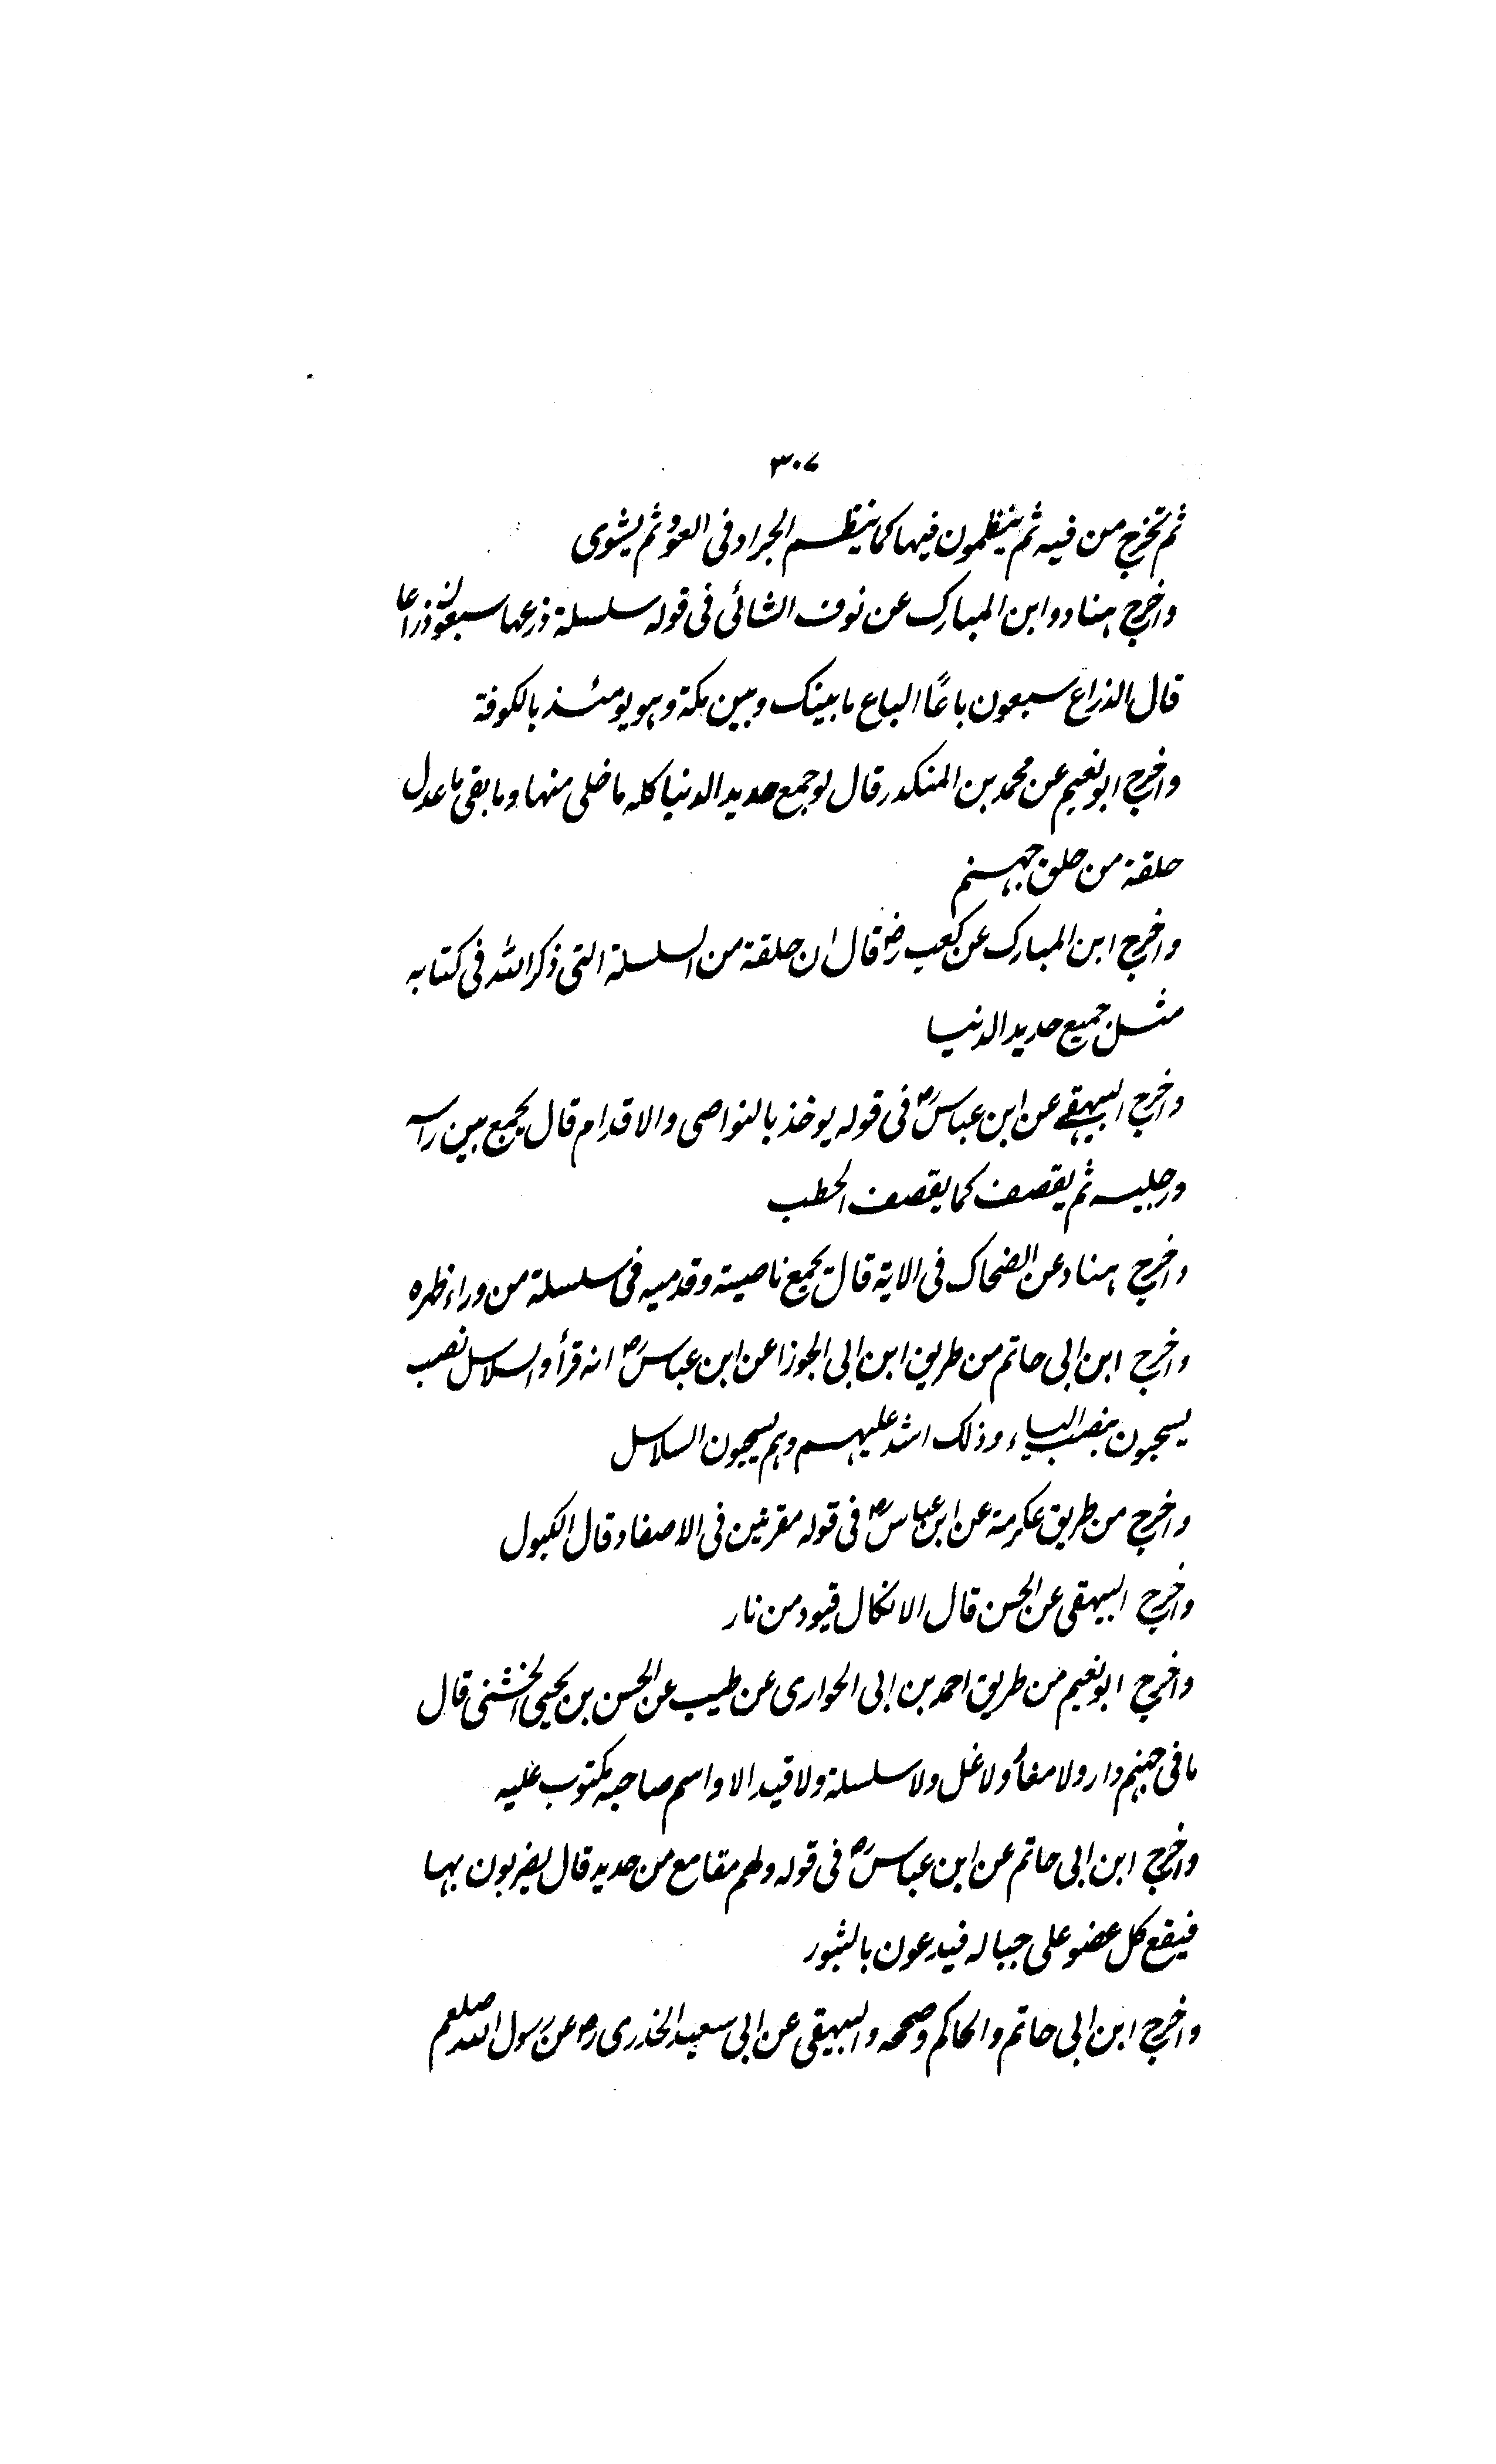 ٣٠٧
ثم تخرج من فيه ثم ينظمون فيها كما ينظم الجراد في العود ثم يشوى
واخرج هناد وابن المبارك عن نوف الشائى فى قوله سلسلة ذرعها سبعون ذراعا
قال الذراع سبعون باعًا الباع ما بينك وبين مكة وهو يومئذ بالكوفة
واخرج ابو نعيم عن محمد بن المنكدر قال لو جمع حديد الدنيا كله ما خلى منها وما بقى ما عدل
حلقة من حلق جهنم
واخرج ابن المبارك عن كعب رض قال ان حلقة من السلسلة التى ذكر الله فى كتابه
مثل جميع حديد الدنيا
واخرج البيهقي عن ابن عباس رض فى قوله يوخذ بالنواصى والاقدام قال يجمع بين راسه
ورجليه ثم يقصف كما يقصف الحطب
واخرج هناد عن الضحاك فى الاية قال يجمع ناصيته وقدميه فى سلسلة من وراء ظهره
واخرج ابن ابى حاتم من طريق ابن ابى الجوزا عن ابن عباس رض انه قرأ والسلاسل نصب
يسحبون بنصب الياء وذلك اشد عليهم وهم يسحبون السلاسل
واخرج من طريق عكرمة عن ابن عباس رض فى قوله مقرنين فى الاصفاد قال الكبول
واخرج البيهقى عن الحسن قال الانكال قيود من نار
واخرج ابو نعيم من طريق احمد بن ابى الحوارى عن طيب عن الحسن بن يحيى الخشنى قال
ما فى جهنم دار ولا مغار ولا غل ولا سلسلة ولا قيد الا واسم صاحبه مكتوب عليه
واخرج ابن ابى حاتم عن ابن عباس رض فى قوله ولهم مقامع من حديد قال يضربون بها
فيقع كل عضو على حباله فيدعون بالثبور
واخرج ابن ابى حاتم والحاكم وصححه والبيهقى عن ابى سعيد الخدرى رض عن رسول الله صلعم